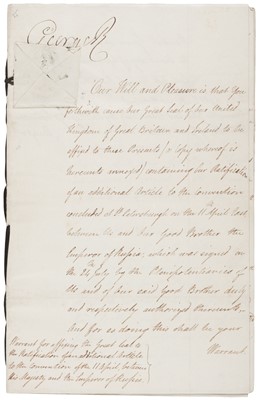 George R
Our Will and Pleasure is that You
forthwith cause Our Great Seal of Our United
Kingdom of Great Britain and Ireland to be
affixed to these Presents (a Copy whereof is
hereunto annex'd) containing Our Ratification
of an additional Article to the Convention
concluded at St. Petersburgh on the 11th April last
between Us and Our Good Brother the
Emperor of Russia; which was signed on
the 24 July by the Plenipotentiaries of
Us and of Our said Good Brother duly
and respectively authorized thereunto.
And for so doing this shall be your
Warrant
Warrant for affixing the Great Seal to
the Ratification of an additional Article
to the Convention of the 11 April between
His Majesty and the Emperor of Russia